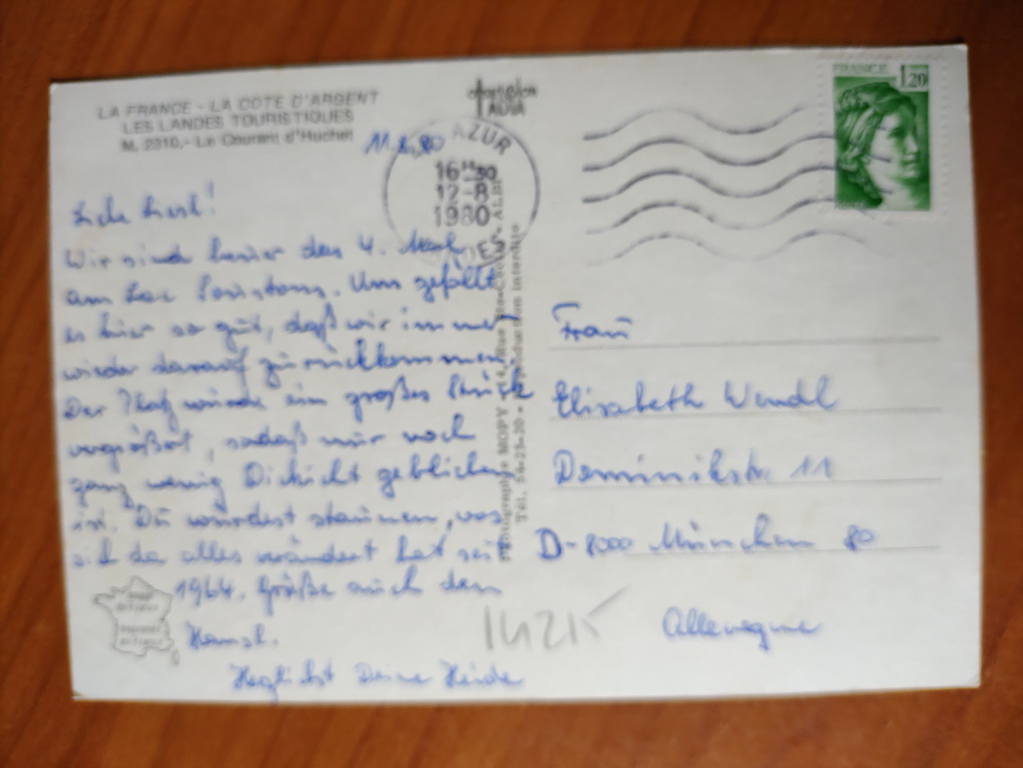 LA FRANCE - LA COTE D'ARGENT
LES LANDES TOURISTIQUES
M. 2310. - Le Courant d'Huchet
11.8.80
Wir sind heuer das 4. Mal
am Lac. Uns gefällt
es hier so gut, daß wir immer
wieder darauf zurückkommen.
Der Platz wurde ein großes Stück
vergrößert, sodaß nur noch
ganz wenig Dickicht geblieben
ist. Du würdest staunen, was
sich da alles verändert hat seit
1964. Grüße auch den
Hansl.
Herzlichst Deine Heide
AZUR
16H30
12-8
1980
FRANCE
1,20
Frau
Elisabeth Wendl
Dominikstr. 11
D-8000 München 80
Allemagne
14215